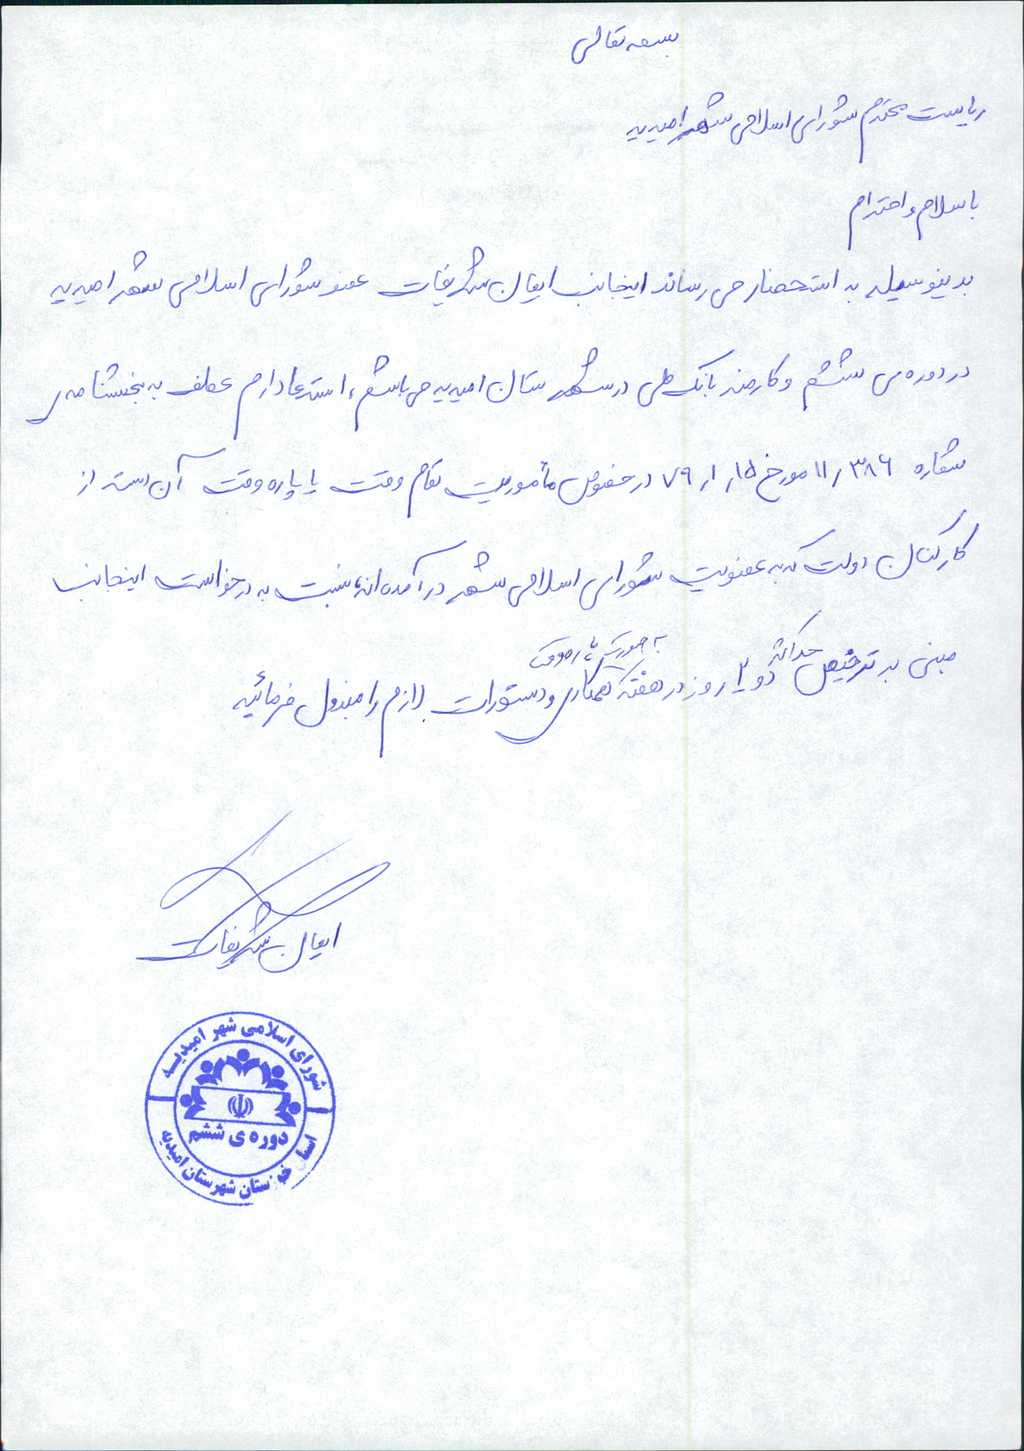 بسمه تعالی
ریاست محترم شورای اسلامی شهر امیدیه
با سلام و احترام
بدینوسیله به استحضار می رساند اینجانب ایمان شریفات عضو شورای اسلامی شهر امیدیه
در دوره ی ششم و کارمند بانک ملی در شهرستان امیدیه می باشم، استدعا دارم عطف به بخشنامه ی
شماره ۱۱/۳۸۶ مورخ ۷۹/۱/۱۵ در خصوص مأموریت تمام وقت یا پاره وقت آن دسته از
کارکنان دولت که به عضویت شورای اسلامی شهر درآمده اند، نسبت به درخواست اینجانب
به صورت پاره وقت
مبنی بر ترخیص حداکثر دو یا روز در هفته همکاری و دستورات لازم را مبذول فرمائید
ایمان شریفات
شورای اسلامی شهر امیدیه
دوره ی ششم
استان خوزستان شهرستان امیدیه